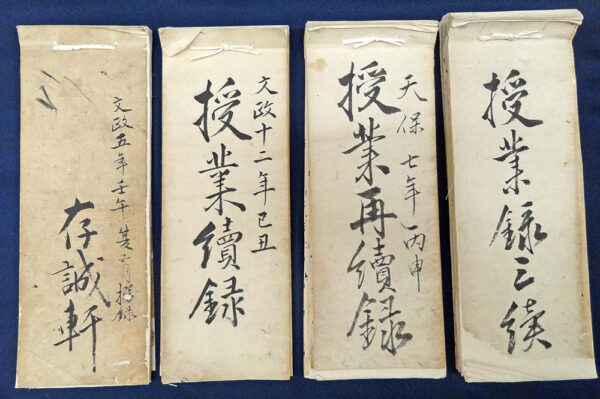 文政五年壬午
存誠軒
文政十二年己丑
授業續録
天保七年丙申
授業再續録
授業録三續